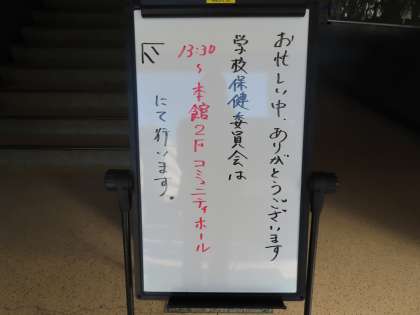 お忙しい中、ありがとうございます
学校保健委員会は
13:30
～本館2Fコミュニティホール
にて行います。